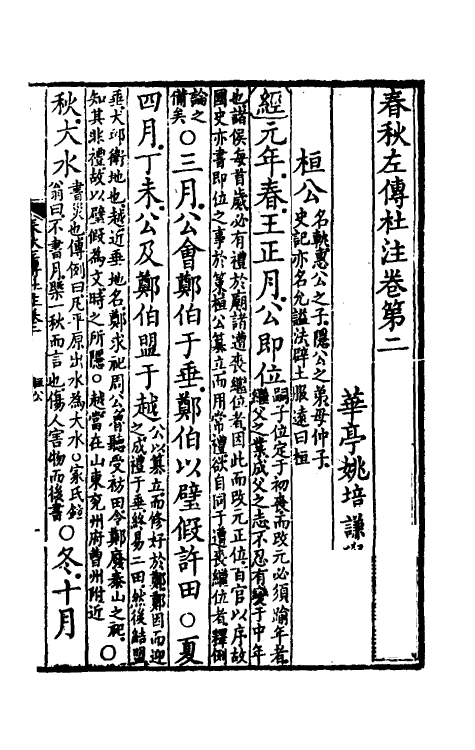 春秋左傳杜注卷第二
華亭姚培謙學
桓公名軌惠公之子隱公之弟母仲子
史記亦名允諡法辟土服遠曰桓
經元年春王正月公即位嗣子位定于初喪而改元必須踰年者
繼父之業成父之志不忍有變于中年
也諸侯每首歲必有禮於廟諸遭喪繼位者因此而改元正位百官以序故
國史亦書即位之事於策桓公篡立而用常禮欲自同于遭喪繼位者釋例
論之
備矣○三月公會鄭伯于垂鄭伯以璧假許田○夏
四月丁未公及鄭伯盟于越公以篡立而修好於鄭鄭因而迎
之成禮于垂終易二田然後結盟
垂犬邱衛地也越近垂地名鄭求祀周公魯聽受祊田令鄭廢泰山之祀
知其非禮故以璧假為文時之所隱○越當在山東兖州府曹州附近○
秋大水書災也傳例曰凡平原出水為大水○家氏鉉
翁曰不書月槩一秋而言也傷人害物而後書○冬十月
桓公